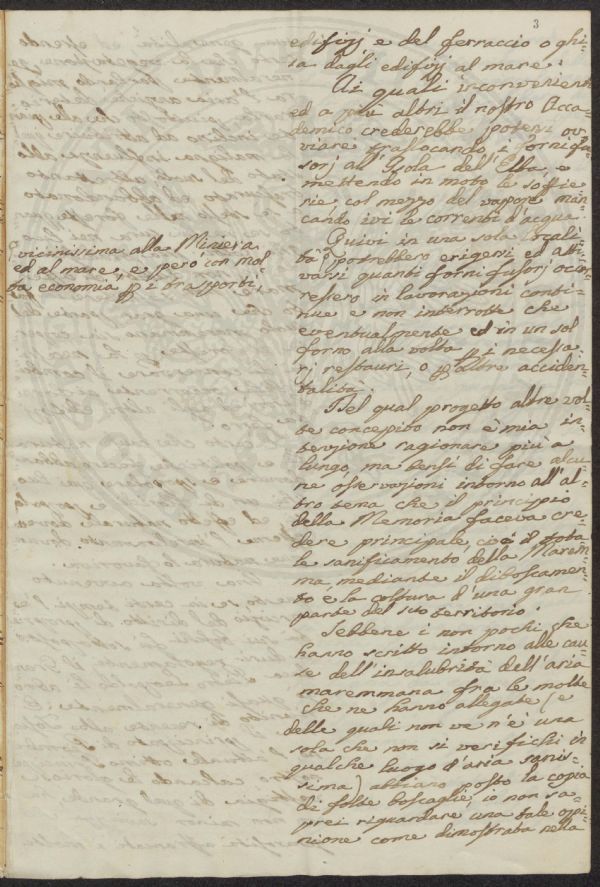 3
edifizj e del ferraccio o ghi=
sa dagli edifizj al mare.
Ai quali inconvenienti
ed a più altri il nostro Acca=
demico crederebbe potersi ov=
viare traslocando i forni fu=
sorj all'Isola dell'Elba, e
mettendo in moto le soffie=
rie col mezzo del vapore man=
cando ivi le correnti d'acqua.
Quivi in una sola locali=
tà potrebbero erigersi ed atti=
varsi quanti forni fusorj occor=
ressero in lavorazioni conti=
nue e non interrotte che
eventualmente ed in un sol
forno alla volta i necessa=
rj restauri, o altre acciden=
talità.
vicinissima alla Miniera
ed al mare, e però con mol=
ta economia i trasporti,
Del qual progetto altre vol=
te concepito non è mia in=
tenzione ragionare più a
lungo, ma bensì di fare alcu=
ne osservazioni intorno all'al=
tro tema che il principio
della Memoria faceva cre=
dere principale, cioè il tota=
le sanificamento della Marem=
ma, mediante il diboscamen=
to e la coltura d'una gran
parte del suo territorio.
Sebbene i non pochi che
hanno scritto intorno alle cau=
se dell'insalubrità dell'aria
maremmana fra le molte
che ne hanno allegate (e
delle quali non ve n'è una
sola che non si verifichi in
qualche luogo d'aria sanis=
sima) abbiano posto la copia
di folte boscaglie, io non sa=
prei riguardare una tale opi=
nione come dimostrata nella